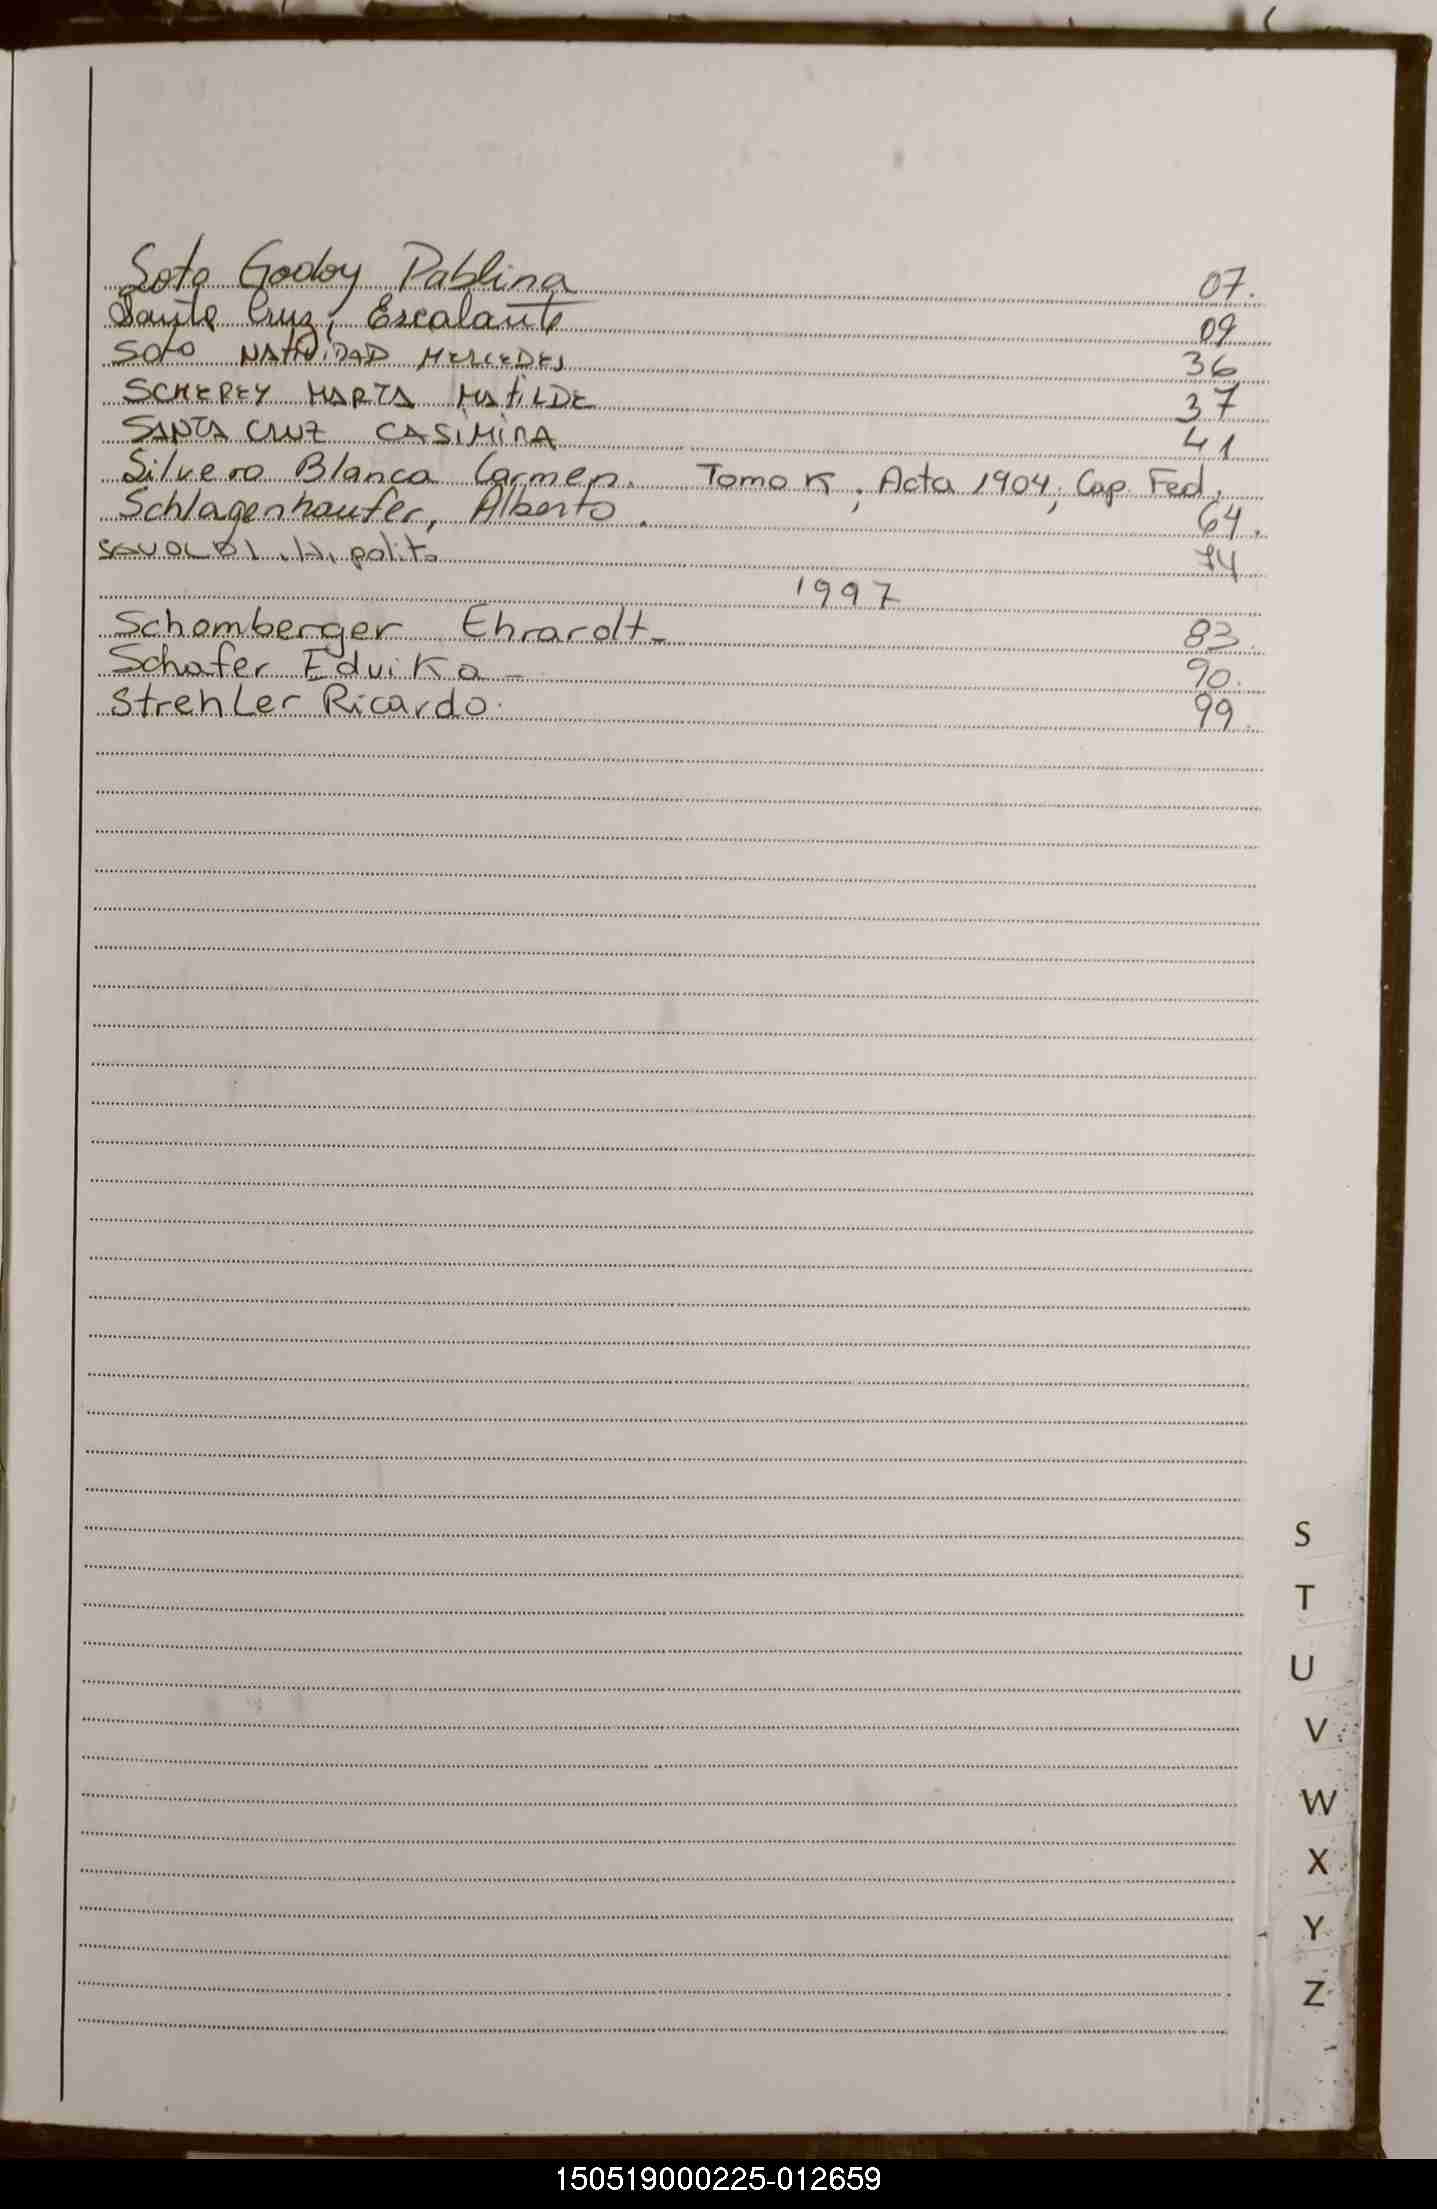 Soto Godoy Pablina 07.
Santa Cruz, Escalante 09
Soto NATIVIDAD MERCEDES 36
SCHEREY MARTA MATILDE 37
SANTA CRUZ CASIMIRA 41
Silvero Blanca Carmen. Tomo K, Acta 1904, Cap. Fed,
Schlagenhaufer, Alberto. 64.
SAVOLDI, H, polit. 74
1997
Schomberger Ehrardt- 83.
Schafer Eduika - 90.
Strehler Ricardo. 99.
S
T
U
V
W
X
Y
Z
150519000225-012659